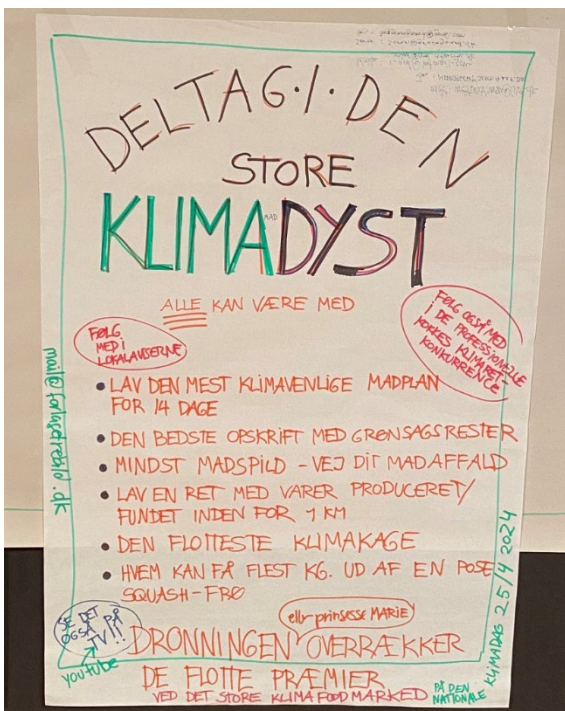 DELTAG·I·DEN
STORE
KLIMADYST
MAD
ALLE KAN VÆRE MED
FØLG
MED I
LOKALAVISERNE
FØLG OGSÅ MED
I DE PROFESSIONELLE
KOKKES KLIMARET-
KONKURRENCE
• LAV DEN MEST KLIMAVENLIGE MADPLAN
FOR 14 DAGE
• DEN BEDSTE OPSKRIFT MED GRØNSAGSRESTER
• MINDST MADSPILD - VEJ DIT MADAFFALD
• LAV EN RET MED VARER PRODUCERET/
FUNDET INDEN FOR 1 KM
• DEN FLOTTESTE KLIMAKAGE
• HVEM KAN FÅ FLEST KG. UD AF EN POSE
SQUASH-FRØ
SE DET
OGSÅ PÅ
TV!!
youtube
elly prinsesse MARIE
DRONNINGEN OVERRÆKKER
DE FLOTTE PRÆMIER
VED DET STORE KLIMA FOOD MARKED
PÅ DEN
NATIONALE
KLIMADAG 25/4 2024